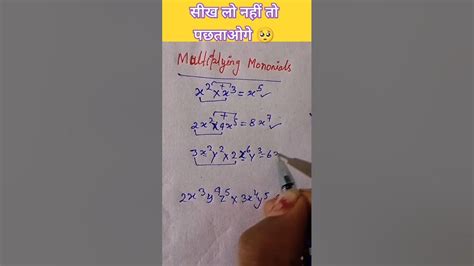 सीख लो नहीं तो
पछताओगे 🥺
Multiplying Monomials
x² × x³ = x⁵ ✓
2x² × 4x⁵ = 8x⁷ ✓
3x³y² × 2x⁶y³ = 6x
2x³y⁹z⁵ × 3x⁴y⁵